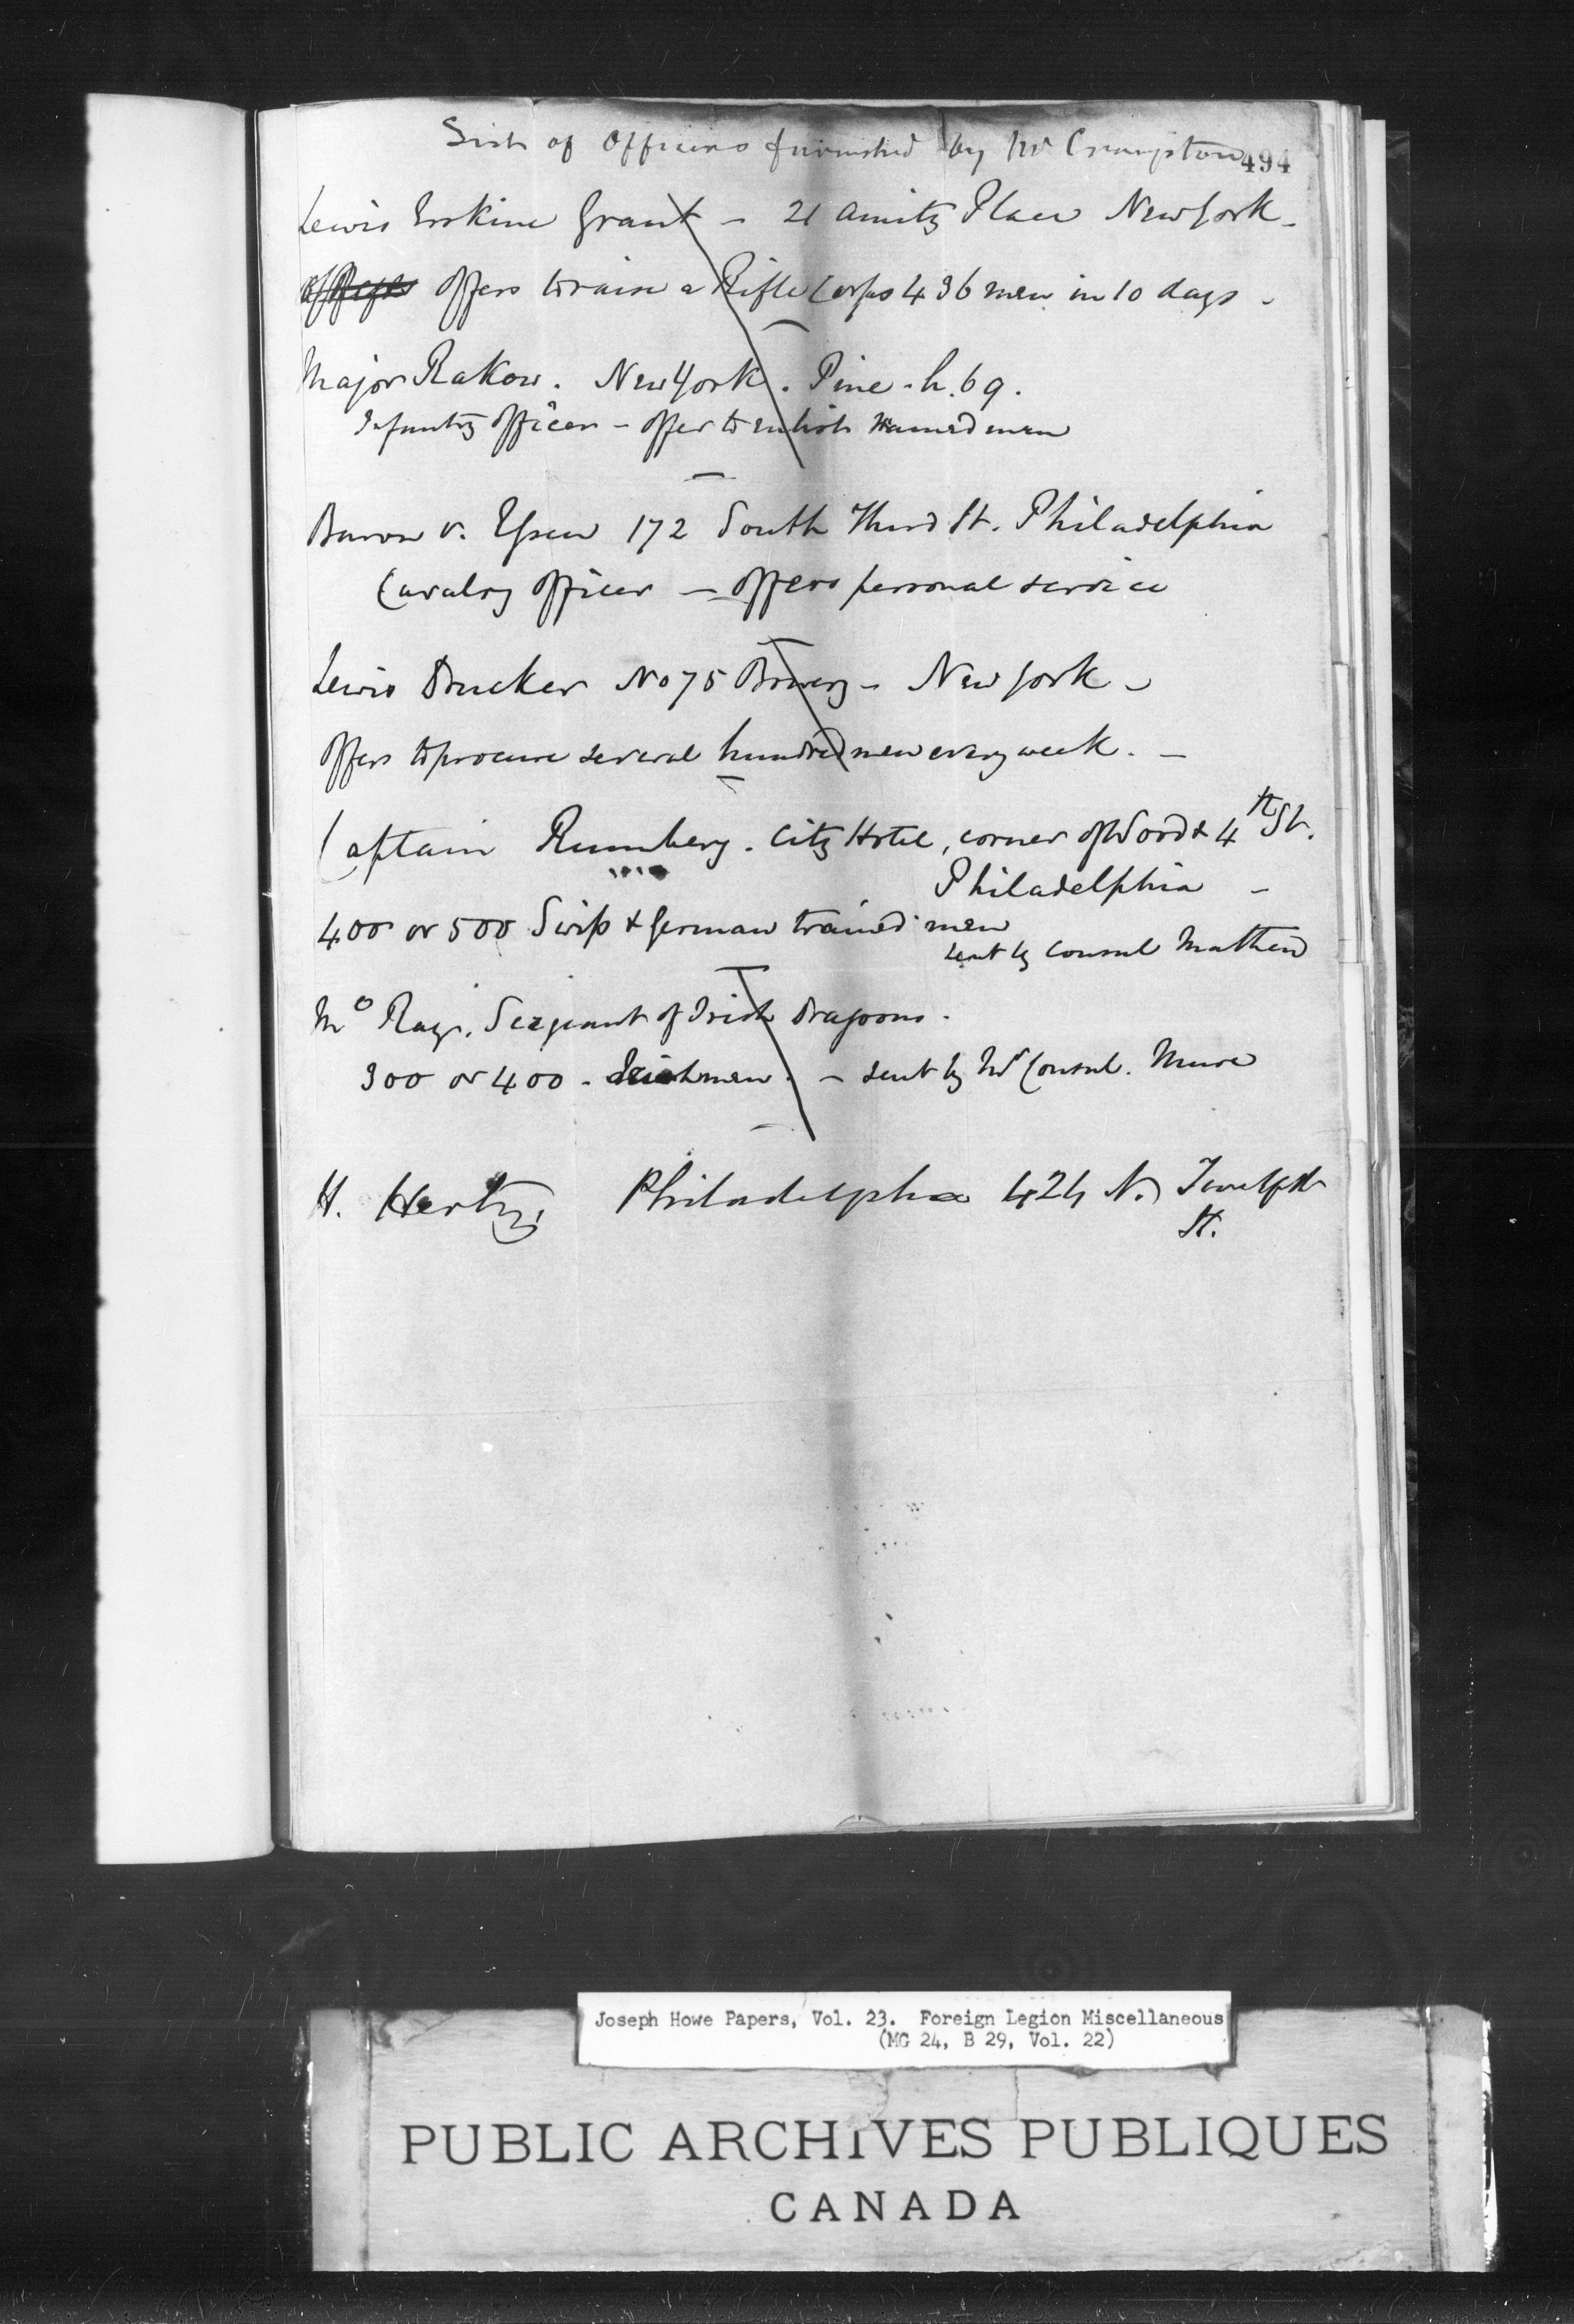 List of Officers furnished by Mr Crampton 494
Lewis Erskine Grant – 21 Amity Place New York –
offers to raise a Rifle Corps 436 men in 10 days –
Major Rakow. New York. Pine. h. 69.
Infantry officer – offer to enlist trained men
Baron v. Essen 172 South Third St. Philadelphia
Cavalry officer – offers personal service
Lewis Drucker No 75 Bowery – New York –
offers to procure several hundred men every week. –
Captain Rumberg. City Hotel, corner of Wood & 4th St.
Philadelphia –
400 or 500 Swiss & German trained men
sent by Consul Mathew
Mc Ray. Sergeant of Irish Dragoons.
300 or 400 – Irishmen. – sent by Mr Consul. Mure
H. Hertz, Philadelphia 424 N. Twelfth
St.
Joseph Howe Papers, Vol. 23. Foreign Legion Miscellaneous
(MG 24, B 29, Vol. 22)
PUBLIC ARCHIVES PUBLIQUES
CANADA